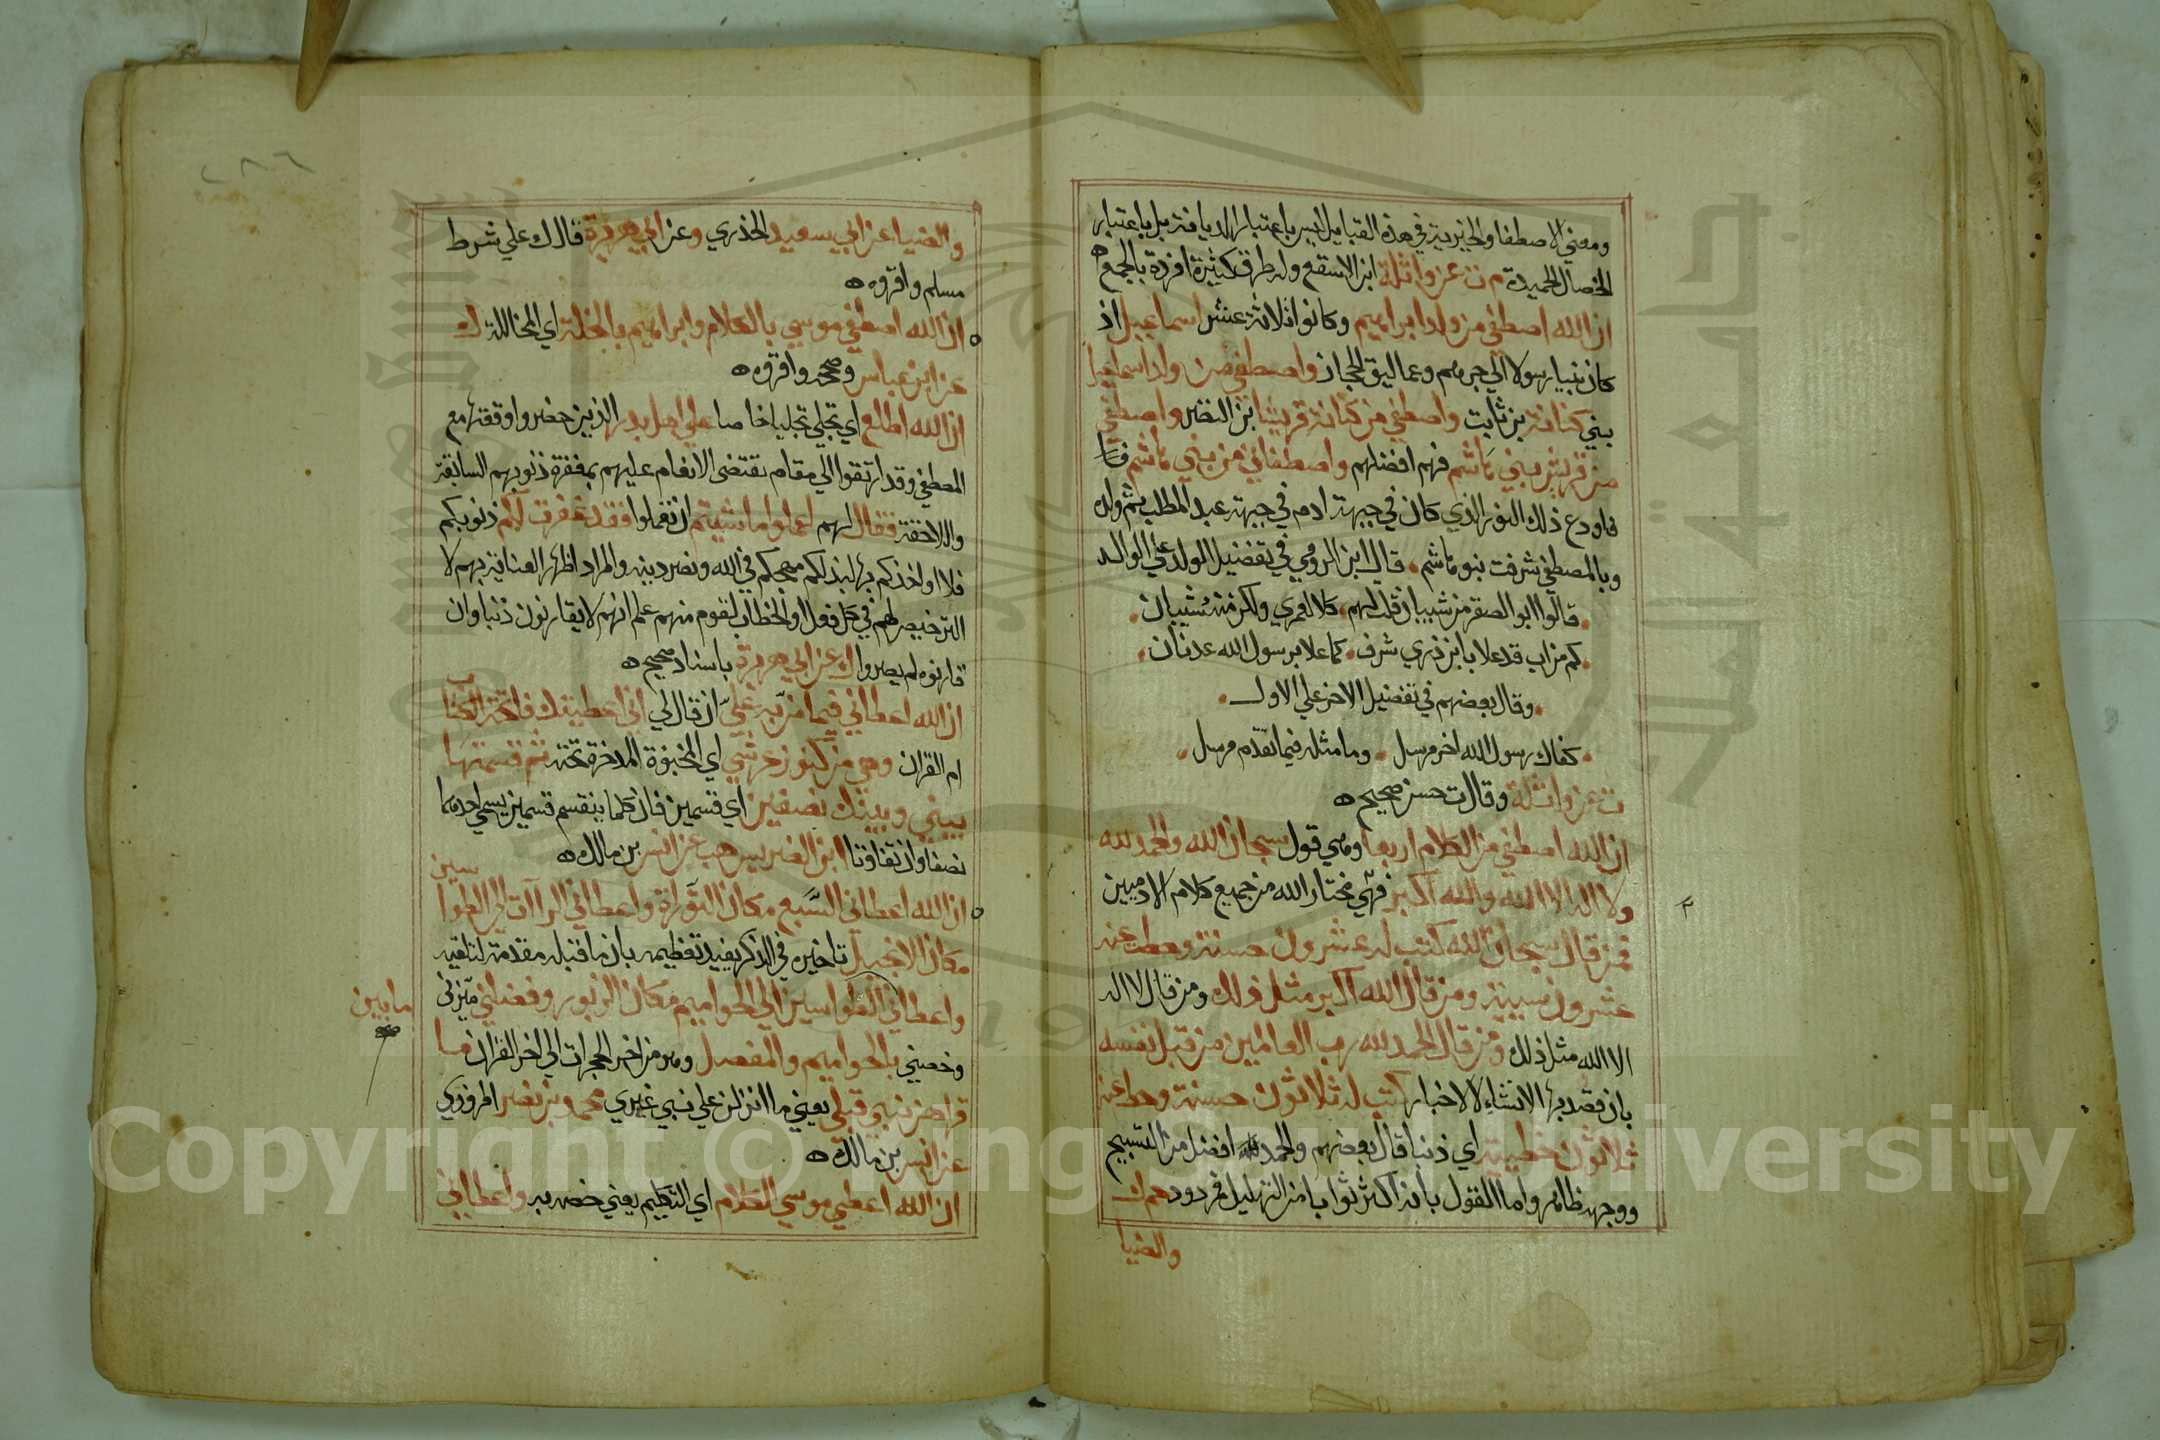 ومعني الاصطفا والخيرية في هذه القبايل ليس باعتبار الديانة بل باعتبار
الخصال الحميدة م ت عن واثلة ابن الاسقع وله طرق كثيرة افردة بالجمع ه
ان الله اصطفي من ولد ابراهيم وكانوا ثلاثة عشر اسماعيل اذ
كان نبيا رسولا الي جرهم وعماليق الحجاز واصطفي من ولد اسماعيل
بني كنانة بن ثابت واصطفي من كنانة قريشا بن النضر واصطفي
من قريش بني هاشم فهم افضلهم واصطفاني من بني هاشم
فاودع ذلك النور الذي كان في جبهة ادم في جبهة عبد المطلب ثم ولده
وبالمصطفي شرفت بنو هاشم قال ابن الرومي في تفضيل الولد علي الوالد
قالوا ابو الصقر من شيبان قلت لهم كلا لعمري ولكن منه شيبان
كم من اب قد علا بابن ذري شرف كما علا برسول الله عدنان
وقال بعضهم في تفضيل الاخر علي الاول
كفاك رسول الله اخر مرسل وما مثله فيما تقدم مرسل
ت عن واثلة وقال ت حسن صحيح ه
ان الله اصطفي من الكلام اربعا وهي قول سبحان الله والحمد لله
ولا اله الا الله والله اكبر فهي مختار الله من جميع كلام الادميين
فمن قال سبحان الله كتب له عشرون حسنة وحطت عنه
عشرون سيية ومن قال الله اكبر مثل ذلك ومن قال لا اله
الا الله مثل ذلك ومن قال الحمد لله رب العالمين من قبل نفسه
بان قصد بها الانشاء لا الاخبار كتب له ثلاثون حسنة وحط عنه
ثلاثون خطيية اي ذنبا قال بعضهم والحمد لله افضل من التسبيح
ووجهه ظاهر واما القول بانه اكثر ثوابا من التهليل فمردود حم ك
والضيا
والضيا عن ابي سعيد الخدري وعن ابي هريرة قال ك علي شرط
مسلم واقروه ه
ان الله اصطفي موسي بالكلام وابراهيم بالخلة اي المخاللة ك
عن ابن عباس وصححه واقروه ه
ان الله اطلع اي تجلي تجليا خاصا علي اهل بدر الذين حضروا وقعتها مع
المصطفي وقد ارتقوا الي مقام يقتضي الانعام عليهم بمغفرة ذنوبهم السابقة
واللاحقة فقال لهم اعملوا ما شيتم ان تعملوا فقد غفرت لكم ذنوبكم
فلا اواخذكم بها لبذلكم مهجكم في الله ونصر دينه والمراد اظهار العناية بهم لا
الترخيص لهم في كل فعل او الخطاب لقوم منهم علم انهم لا يقارفون ذنبا وان
قارفوه لم يصروا ك عن ابي هريرة باسناد صحيح ه
ان الله اعطاني فيما من به علي ان قال لي اني اعطيتك فاتحة الكتاب
ام القران وهي من كنوز عرشي اي المخبوة المدخرة تحته ثم قسمتها
بيني وبينك نصفين اي قسمين فان كلما ينقسم قسمين يسمي احدهما
نصفا وان تفاوتا ابن الضريس هب عن انس بن مالك ه
ان الله اعطاني السبع مكان التوراة واعطاني الراآت الي الطواسين
مكان الانجيل تاخيره في الذكر يفيد تعظيمه بان ما قبله مقدمة لتلقيه
واعطاني ما بين الطواسين الي الحواميم مكان الزبور وفضلني ميزني
وخصني بالحواميم والمفصل ومر من اخر الحجرات الي اخر القران ما
قراهن نبي قبلي يعني ما انزلن علي نبي غيري محمد بن نصر المروزي
عن انس بن مالك ه
ان الله اعطي موسي الكلام اي التكليم يعني خصه به واعطاني
Copyright © King Saud University